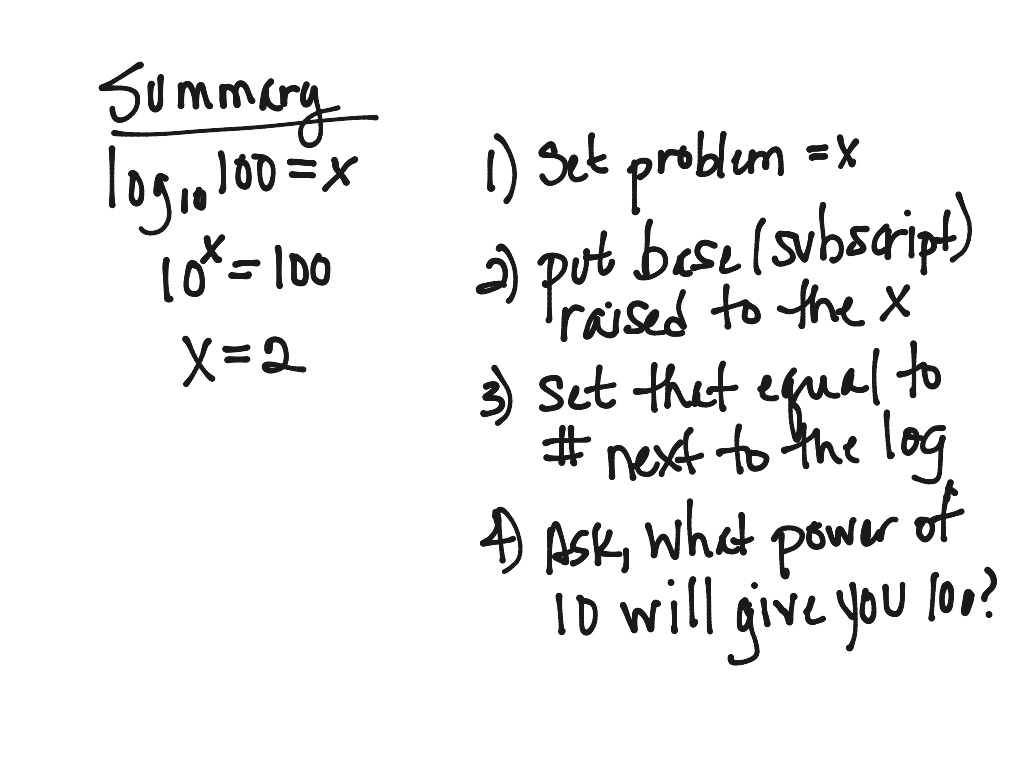 Summary
log₁₀ 100 = x
10ˣ = 100
x = 2
1) Set problem = x
2) put base (subscript)
raised to the x
3) set that equal to
# next to the log
4) Ask, what power of
10 will give you 100?